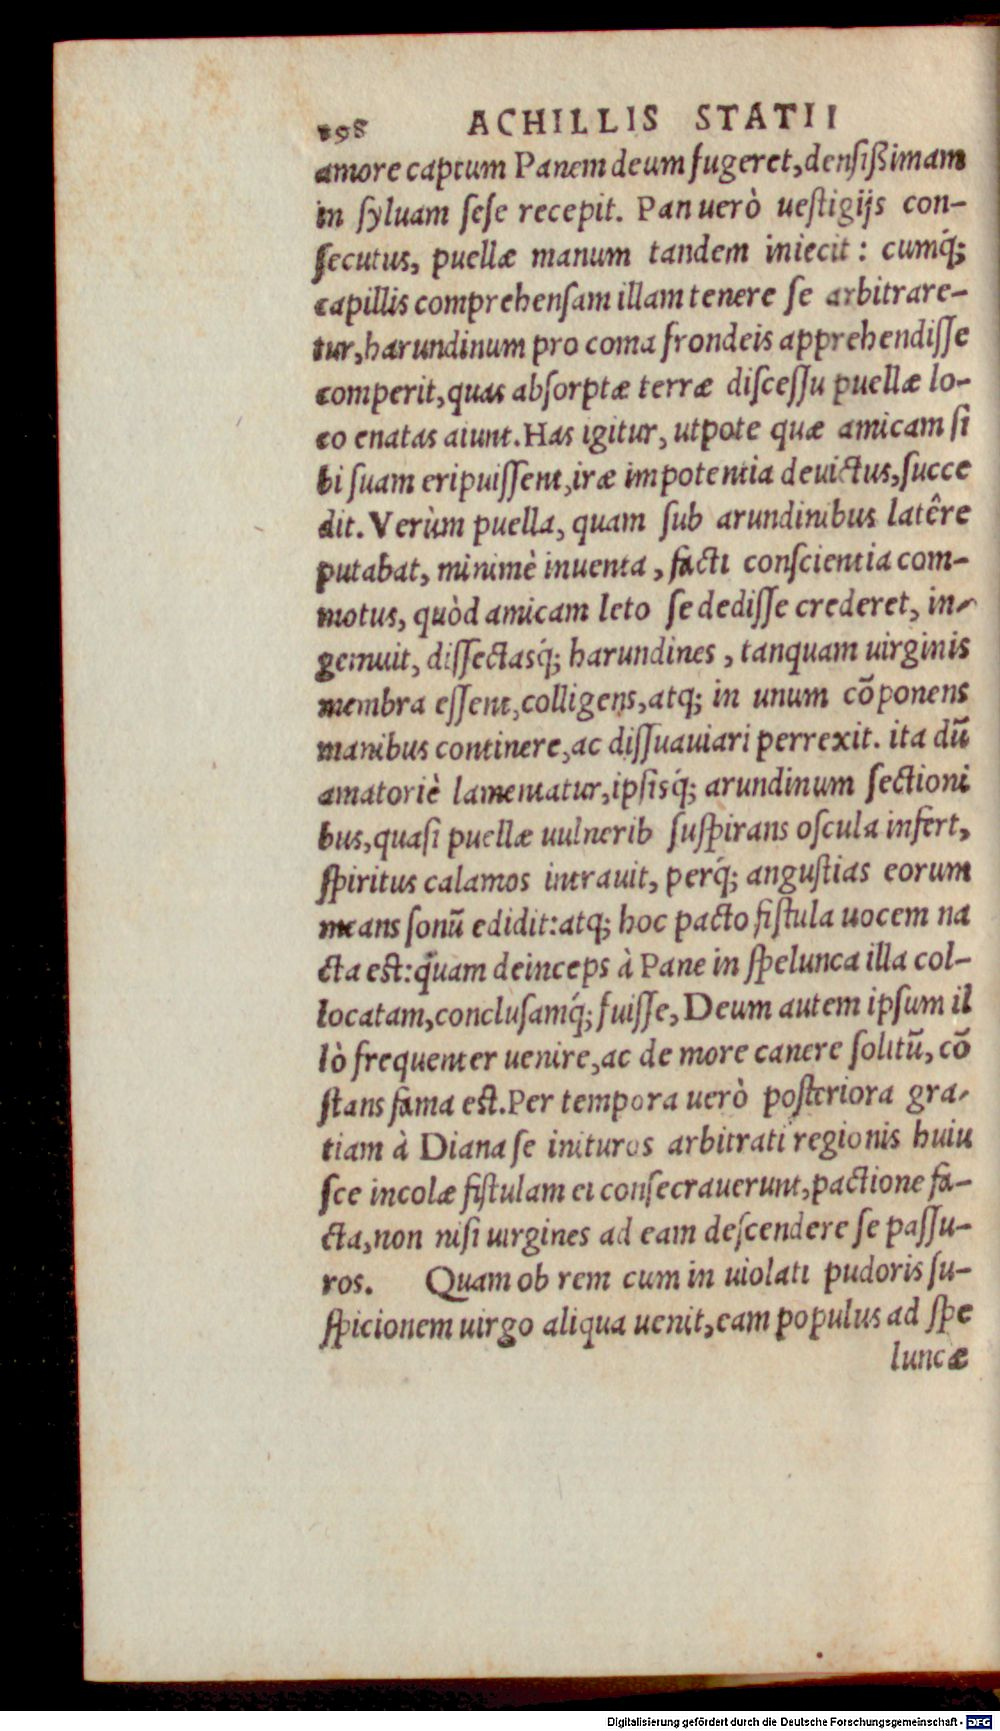 198 ACHILLIS STATII
amore captum Panem deum fugeret, densißimam
in syluam sese recepit. Pan uerò uestigijs con-
secutus, puellæ manum tandem iniecit: cumq́;
capillis comprehensam illam tenere se arbitrare-
tur, harundinum pro coma frondeis apprehendisse
comperit, quas absorptæ terræ discessu puellæ lo-
co enatas aiunt. Has igitur, utpote quæ amicam si
bi suam eripuissent, iræ impotentia deuictus, succe
dit. Verùm puella, quam sub arundinibus latêre
putabat, minimè inuenta, facti conscientia com-
motus, quòd amicam leto se dedisse crederet, in-
gemuit, dissectasq́; harundines, tanquam uirginis
membra essent, colligens, atq; in unum cōponens
manibus continere, ac dissuauiari perrexit. ita dū
amatoriè lamentatur, ipsisq́; arundinum sectioni
bus, quasi puellæ uulnerib suspirans oscula infert,
spiritus calamos intrauit, perq́; angustias eorum
means sonū edidit: atq; hoc pacto fistula uocem na
cta est: quam deinceps à Pane in spelunca illa col-
locatam, conclusamq́; fuisse, Deum autem ipsum il
lò frequenter uenire, ac de more canere solitū, cō
stans fama est. Per tempora uerò posteriora gra-
tiam à Diana se inituros arbitrati regionis huiu
sce incolæ fistulam ei consecrauerunt, pactione fa-
cta, non nisi uirgines ad eam descendere se passu-
ros. Quam ob rem cum in uiolati pudoris su-
spicionem uirgo aliqua uenit, eam populus ad spe
luncæ
Digitalisierung gefördert durch die Deutsche Forschungsgemeinschaft - DFG